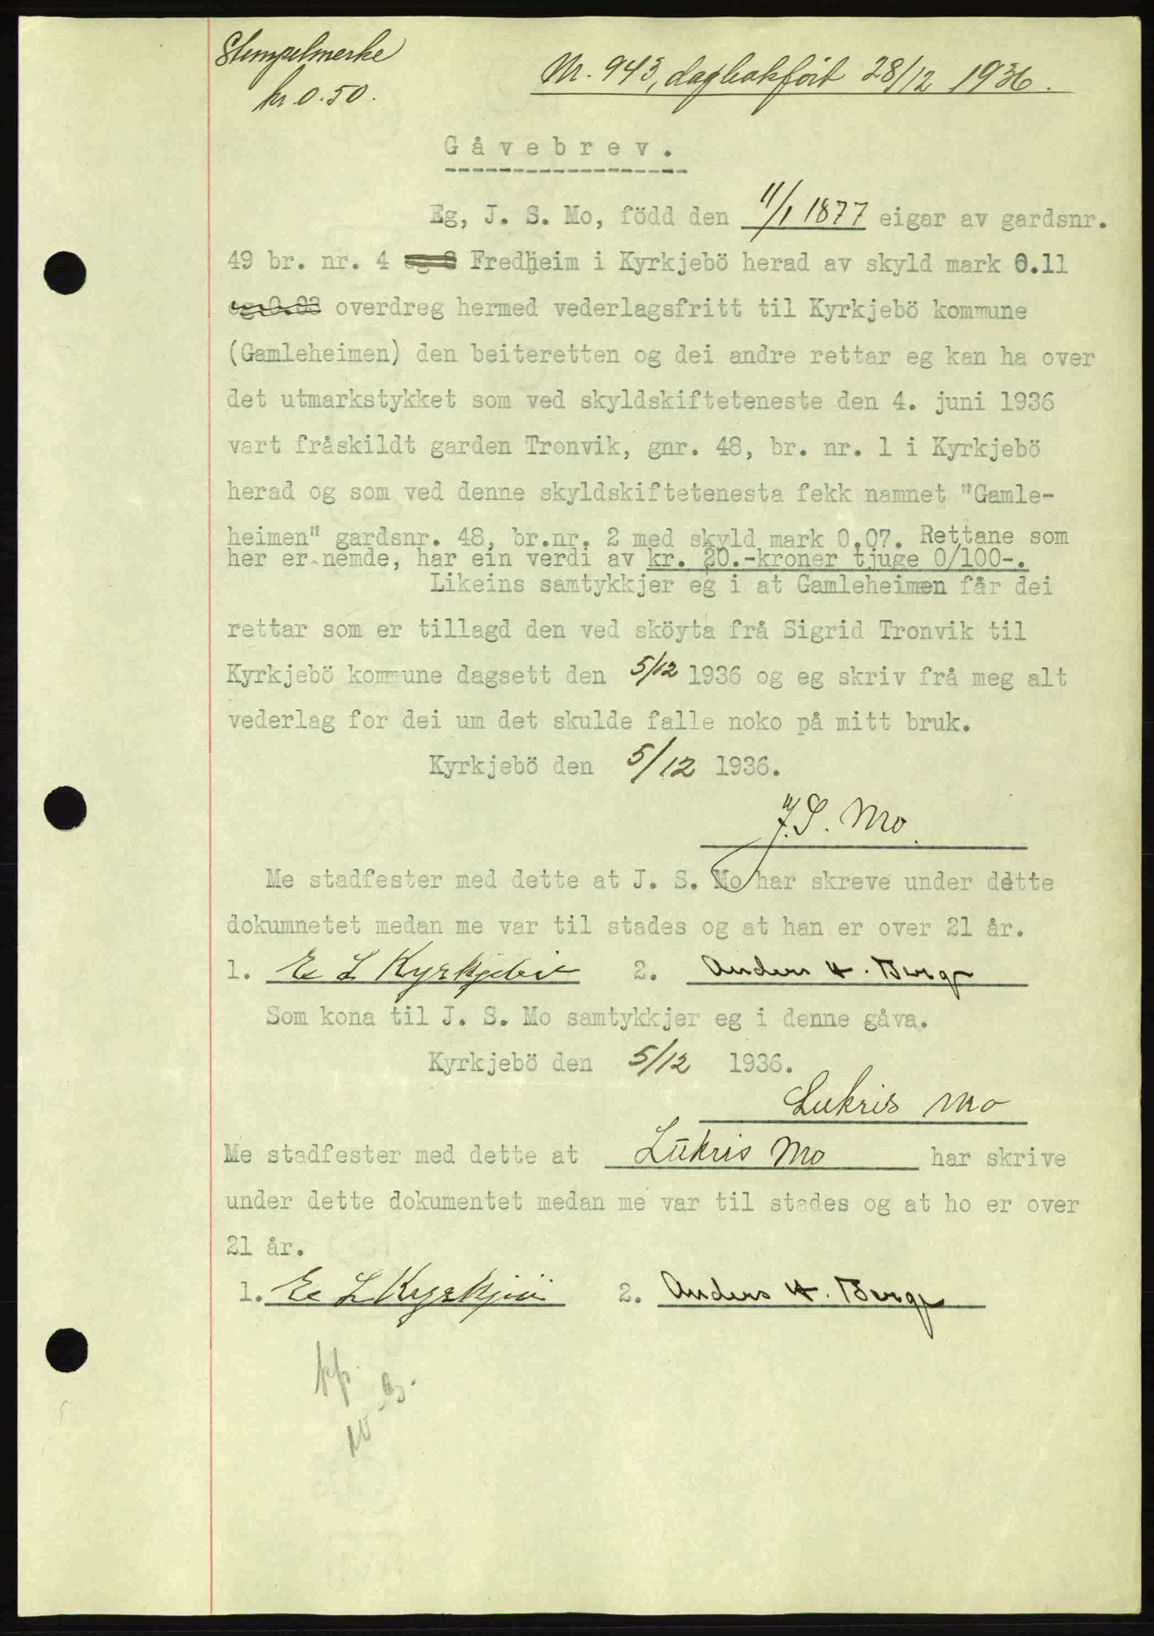 Stempelmerke
kr. 0.50.
Nr. 943, dagbokført 28/12 1936.
Gåvebrev.
Eg, J. S. Mo, född den 11/1 1877 eigar av gardsnr.
49 br. nr. 4 og 8 Fredheim i Kyrkjebö herad av skyld mark 0.11
og 0.03 overdreg hermed vederlagsfritt til Kyrkjebö kommune
(Gamleheimen) den beiteretten og dei andre rettar eg kan ha over
det utmarkstykket som ved skyldskifteteneste den 4. juni 1936
vart fråskildt garden Tronvik, gnr. 48, br. nr. 1 i Kyrkjebö
herad og som ved denne skyldskiftetenesta fekk namnet "Gamle-
heimen" gardsnr. 48, br.nr. 2 med skyld mark 0.07. Rettane som
her er nemde, har ein verdi av kr. 20.-kroner tjuge 0/100-.
Likeins samtykkjer eg i at Gamleheimen får dei
rettar som er tillagd den ved sköyta frå Sigrid Tronvik til
Kyrkjebö kommune dagsett den 5/12 1936 og eg skriv frå meg alt
vederlag for dei um det skulde falle noko på mitt bruk.
Kyrkjebö den 5/12 1936.
J. S. Mo
Me stadfester med dette at J. S. Mo har skreve under dette
dokumnetet medan me var til stades og at han er over 21 år.
1. E L Kyrkjebö 2. Anders H. Berge
Som kona til J. S. Mo samtykkjer eg i denne gåva.
Kyrkjebö den 5/12 1936.
Lukris Mo
Me stadfester med dette at Lukris Mo har skrive
under dette dokumentet medan me var til stades og at ho er over
21 år.
1. E L Kyrkjebö 2. Anders H. Berge